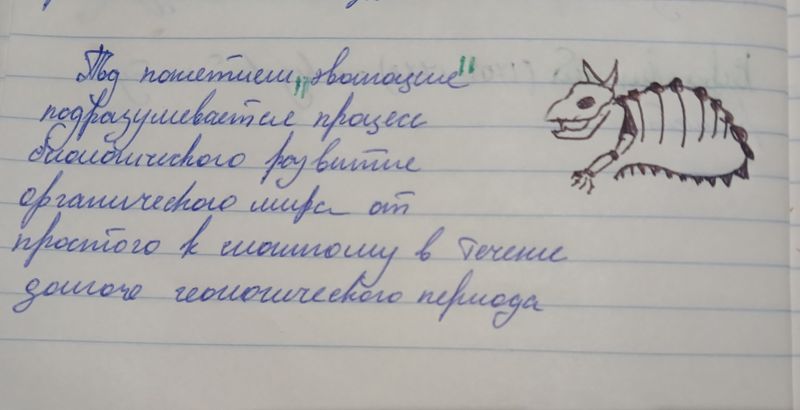 Под понятием „эволюция"
подразумевается процесс
биологического развития
органического мира от
простого к сложному в течение
долгого геологического периода